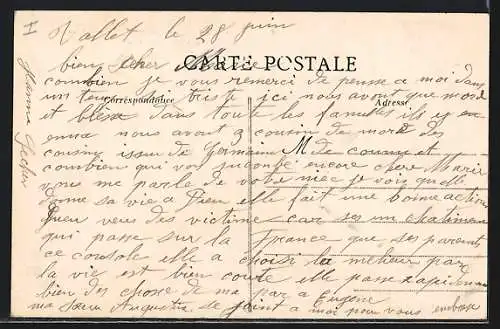 I
Vallet le 28 juin
CARTE POSTALE
bien cher
combien je vous remerci de pense a moi dans
un si triste ici nous avont que mord
Correspondance
Adresse
et blesse dans toute les familles ils y en
enna nous avont 3 cousin de mord des
cousin issu de Germain M de coume et
combien qui von encore cher Marie
vous me parle de votre niece je vois quelle
donne sa vie a Dieu elle fait une bonne action
Dieu veut des victime car ses un chatiment
qui passe sur la France que ses parents
ce console elle a choisi la meilieur par
la vie est bien coute elle passe rapidement
bien des chose de ma par a Eugene
ma seur Augustine se joint a moi pour vous embrasse